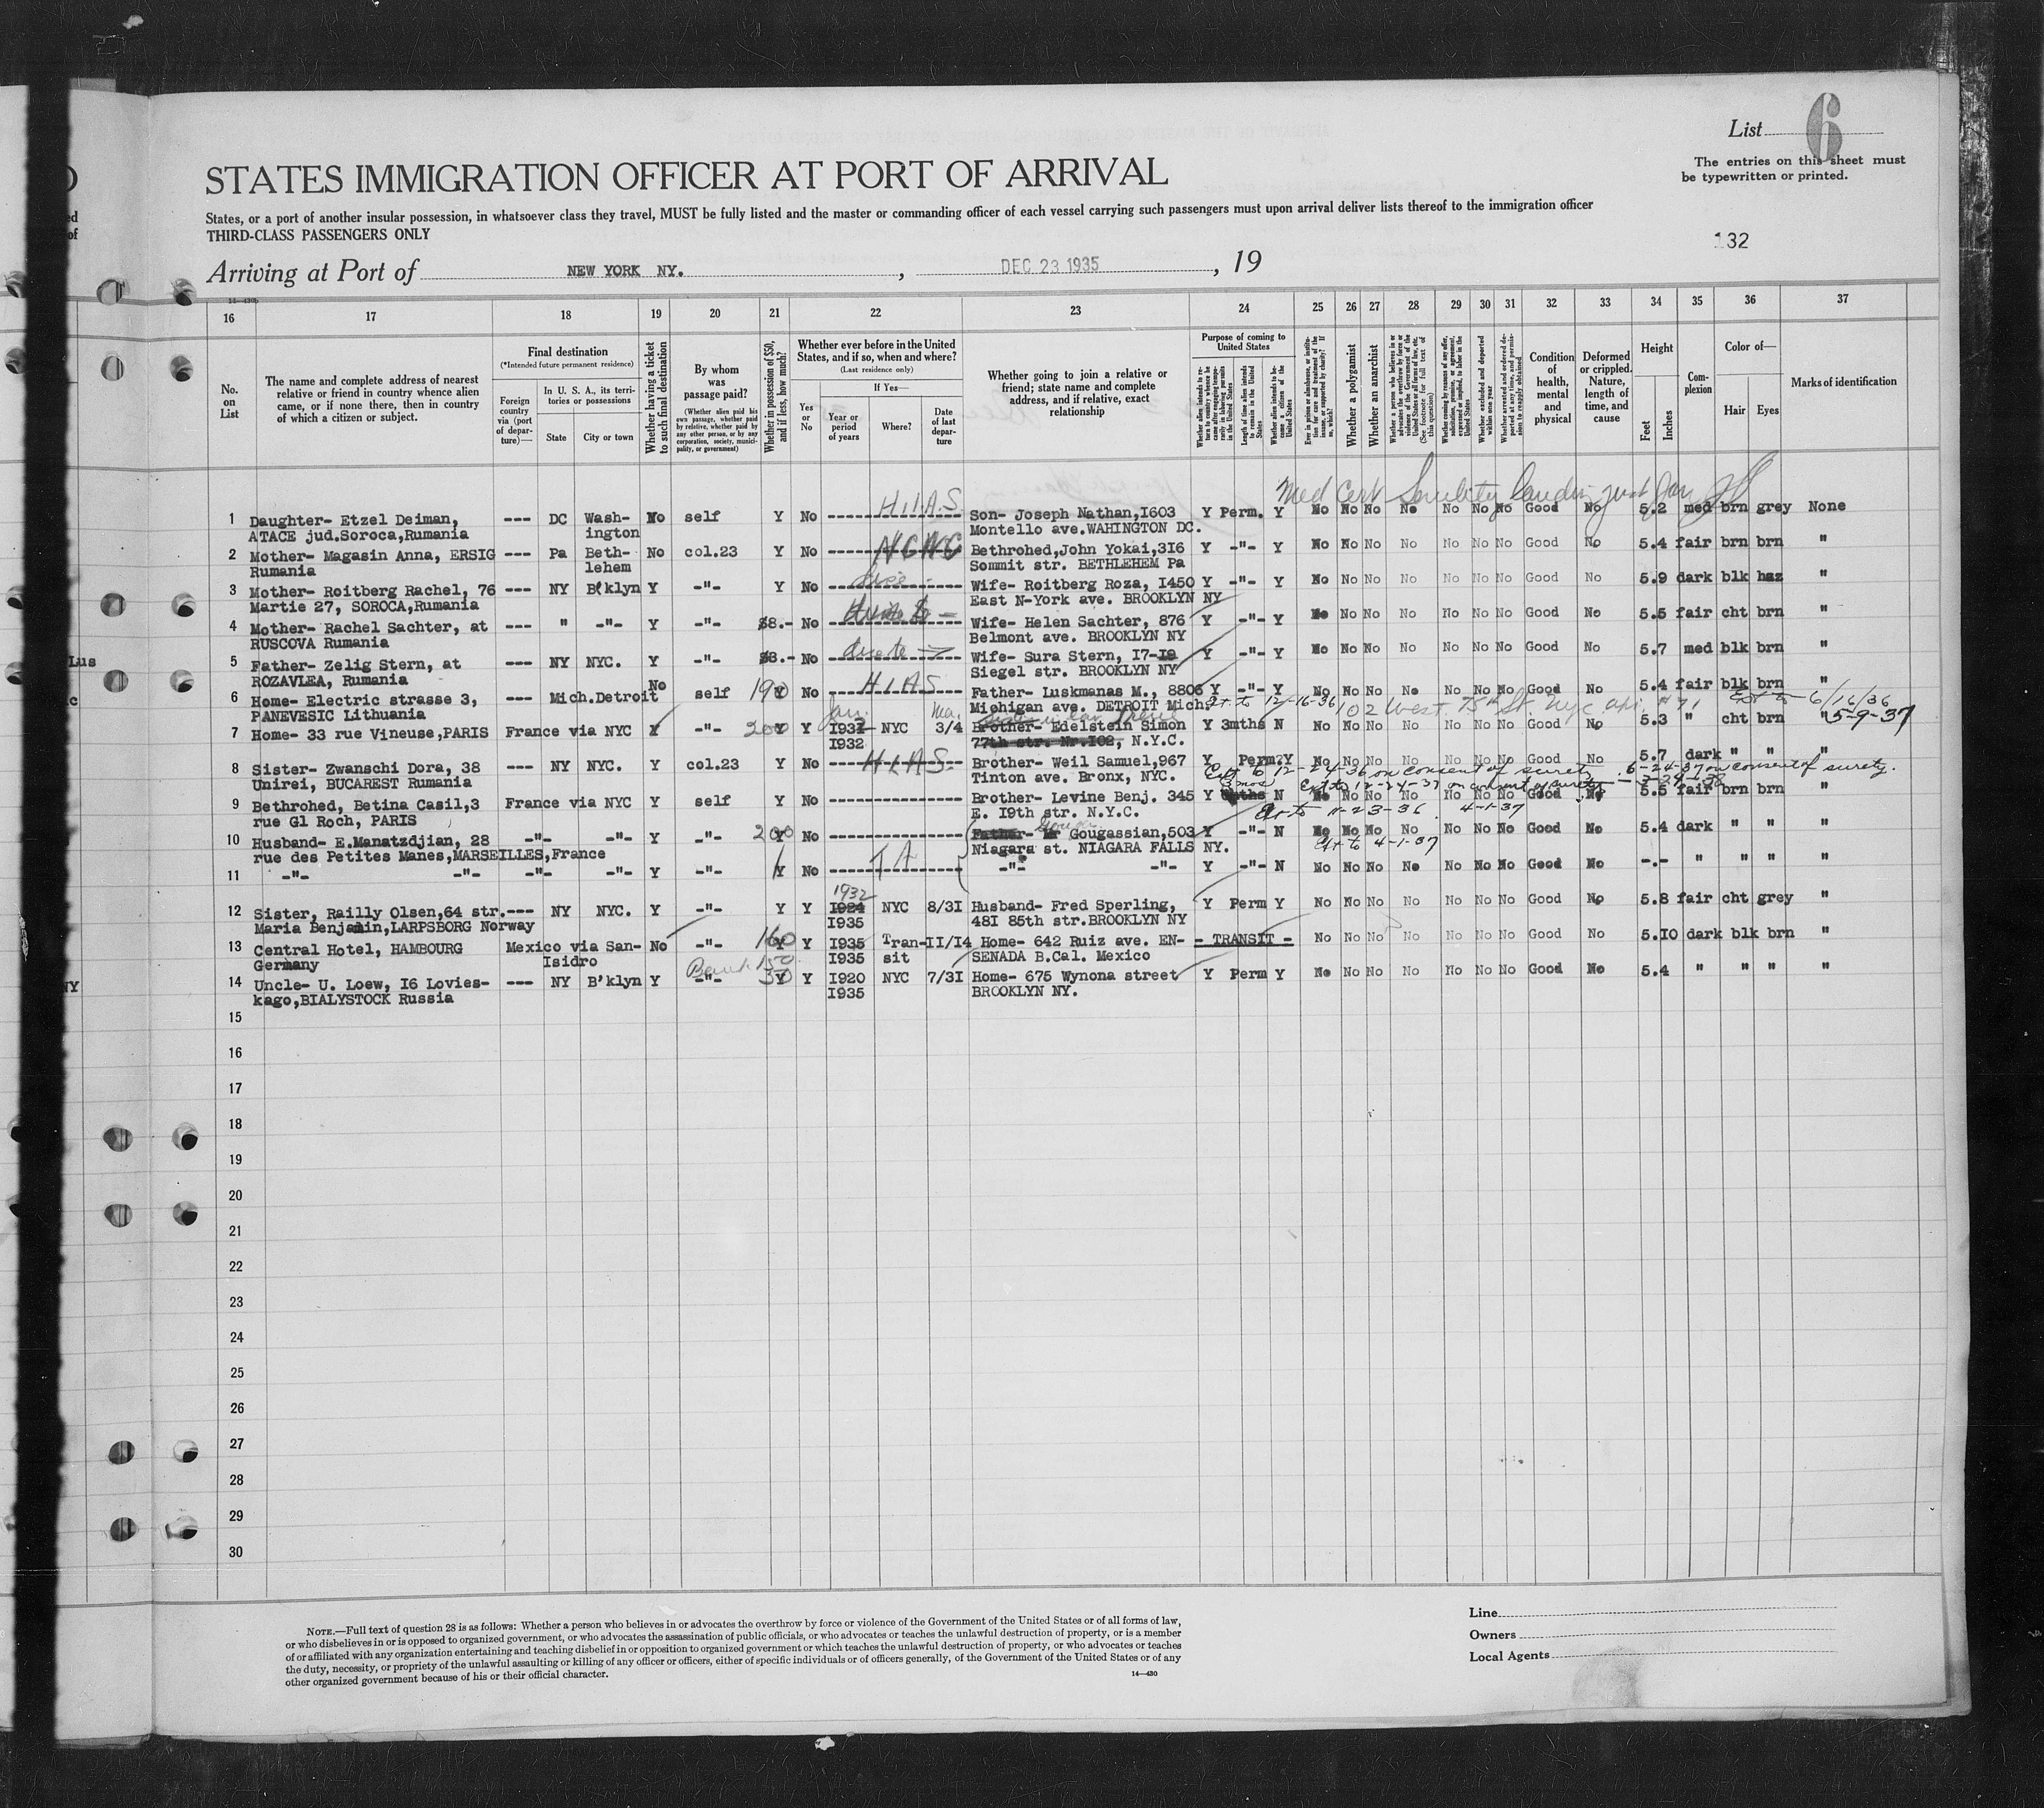 List 6
The entries on this sheet must
be typewritten or printed.
STATES IMMIGRATION OFFICER AT PORT OF ARRIVAL
States, or a port of another insular possession, in whatsoever class they travel, MUST be fully listed and the master or commanding officer of each vessel carrying such passengers must upon arrival deliver lists thereof to the immigration officer
THIRD-CLASS PASSENGERS ONLY
132
Arriving at Port of NEW YORK NY. , DEC 23 1935 , 19
16 17 18 19 20 21 22 23 24 25 26 27 28 29 30 31 32 33 34 35 36 37
No. on List
The name and complete address of nearest relative or friend in country whence alien came, or if none there, then in country of which a citizen or subject.
Final destination
(*Intended future permanent residence)
Foreign country via (port of departure)—
In U. S. A., its territories or possessions
State City or town
Whether having a ticket to such final destination
By whom was passage paid?
(Whether alien paid his own passage, whether paid by relative, whether paid by any other person, or by any corporation, society, municipality, or government)
Whether in possession of $50, and if less, how much?
Whether ever before in the United States, and if so, when and where?
(Last residence only)
Yes or No
If Yes—
Year or period of years
Where?
Date of last departure
Whether going to join a relative or friend; state name and complete address, and if relative, exact relationship
Purpose of coming to United States
Whether a polygamist
Whether an anarchist
Condition of health, mental and physical
Deformed or crippled. Nature, length of time, and cause
Height
Feet Inches
Complexion
Color of—
Hair Eyes
Marks of identification
Med Cert Senility
H.I.A.S.
1 Daughter- Etzel Deiman, --- DC Wash- No self Y No Son- Joseph Nathan,I603 Y Perm. Y No No No No No No No Good No 5.2 med brn grey None
ATACE jud.Soroca,Rumania ington Montello ave.WAHINGTON DC.
2 Mother- Magasin Anna, ERSIG --- Pa Beth- No col.23 Y No Bethrohed,John Yokai,3I6 Y -"- Y No No No No No No No Good No 5.4 fair brn brn "
Rumania lehem Sommit str. BETHLEHEM Pa
3 Mother- Roitberg Rachel, 76 --- NY B'klyn Y -"- Y No Wife- Roitberg Roza, I450 Y -"- Y No No No No No No No Good No 5.9 dark blk haz "
Martie 27, SOROCA,Rumania East N-York ave. BROOKLYN NY
4 Mother- Rachel Sachter, at --- " -"- Y -"- $8.- No Wife- Helen Sachter, 876 Y -"- Y No No No No No No No Good No 5.5 fair cht brn "
RUSCOVA Rumania Belmont ave. BROOKLYN NY
5 Father- Zelig Stern, at --- NY NYC. Y -"- $8.- No Wife- Sura Stern, I7-I9 Y -"- Y No No No No No No No Good No 5.7 med blk brn "
ROZAVLEA, Rumania Siegel str. BROOKLYN NY
H.I.A.S
6 Home- Electric strasse 3, --- Mich.Detroit No self 190 Y No Father- Luskmanas M., 8806 Y -"- Y No No No No No No No Good No 5.4 fair blk brn "
PANEVESIC Lithuania Michigan ave. DETROIT Mich.
Ext to 12-16-36 102 West 75th St. nyc apt. #71 Ext to 6/16/36
7 Home- 33 rue Vineuse,PARIS France via NYC Y -"- 200 Y Y I932 NYC 3/4 Brother- Edelstein Simon Y 3mths N No No No No No No No Good No 5.3 " cht brn " 5-9-37
I932 77th str. Nr.I02, N.Y.C.
H.I.A.S.
8 Sister- Zwanschi Dora, 38 --- NY NYC. Y col.23 Y No Brother- Weil Samuel,967 Y Perm?Y No No No No No No No Good No 5.7 dark " " "
Unirei, BUCAREST Rumania Tinton ave. Bronx, NYC.
Ext to 12-24-36 on consent of surety 6-24-37 on consent of surety.
Ext to 12-24-37 on consent of surety
9 Bethrohed, Betina Casil,3 France via NYC Y self Y No Brother- Levine Benj. 345 Y N No No No No No No No Good No 5.5 fair brn brn "
rue Gl Roch, PARIS E. I9th str. N.Y.C.
Ext to 11-23-36. 4-1-37
10 Husband- E.Manatzdjian, 28 -"- -"- Y -"- 200 Y No Father- Mr Gougassian,503 Y -"- N No No No No No No No Good No 5.4 dark " " "
rue des Petites Manes,MARSEILLES,France Niagara st. NIAGARA FALLS NY.
Ext to 4-1-37
11 -"- -"- -"- -"- Y -"- Y No -"- -"- Y -"- N No No No No No No No Good No -.- " " " "
1932
12 Sister, Railly Olsen,64 str.--- NY NYC. Y -"- Y Y I924 NYC 8/3I Husband- Fred Sperling, Y Perm Y No No No No No No No Good No 5.8 fair cht grey "
Maria Benjamin,LARPSBORG Norway I935 48I 85th str.BROOKLYN NY
13 Central Hotel, HAMBOURG Mexico via San- No -"- 160 Y Y I935 Tran- II/I4 Home- 642 Ruiz ave. EN- - TRANSIT - No No No No No No No Good No 5.I0 dark blk brn "
Germany Isidro I935 sit SENADA B.Cal. Mexico
14 Uncle- U. Loew, I6 Lovies- --- NY B'klyn Y -"- 50 Y Y I920 NYC 7/3I Home- 675 Wynona street Y Perm Y No No No No No No No Good No 5.4 " " " "
kago,BIALYSTOCK Russia I935 BROOKLYN NY.
15
16
17
18
19
20
21
22
23
24
25
26
27
28
29
30
NOTE.—Full text of question 28 is as follows: Whether a person who believes in or advocates the overthrow by force or violence of the Government of the United States or of all forms of law,
or who disbelieves in or is opposed to organized government, or who advocates the assassination of public officials, or who advocates or teaches the unlawful destruction of property, or is a member
of or affiliated with any organization entertaining and teaching disbelief in or opposition to organized government or which teaches the unlawful destruction of property, or who advocates or teaches
the duty, necessity, or propriety of the unlawful assaulting or killing of any officer or officers, either of specific individuals or of officers generally, of the Government of the United States or of any
other organized government because of his or their official character.
14—430
Line
Owners
Local Agents